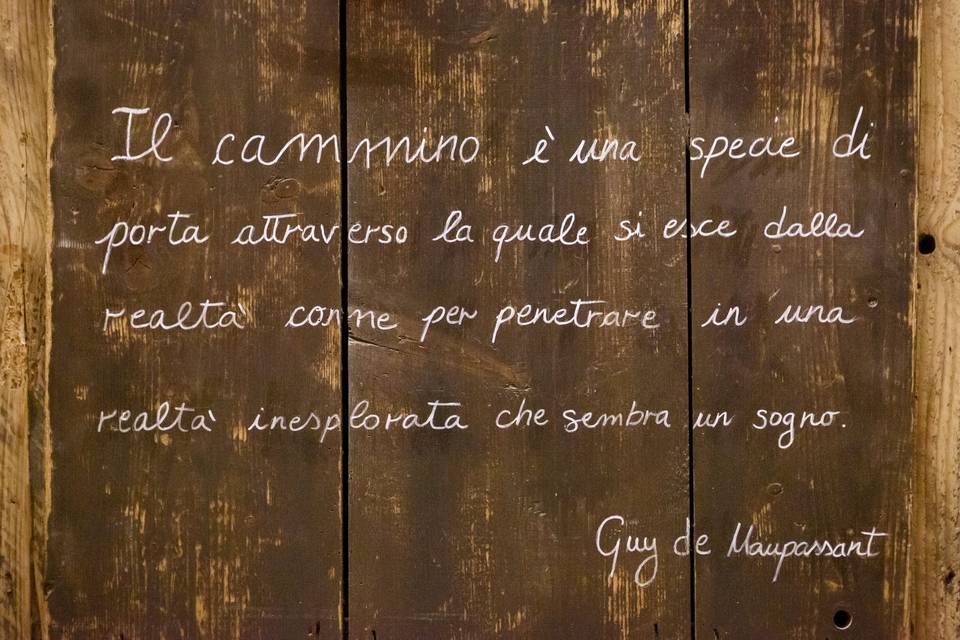 Il cammino è una specie di
porta attraverso la quale si esce dalla
realtà come per penetrare in una
realtà inesplorata che sembra un sogno.
Guy de Maupassant